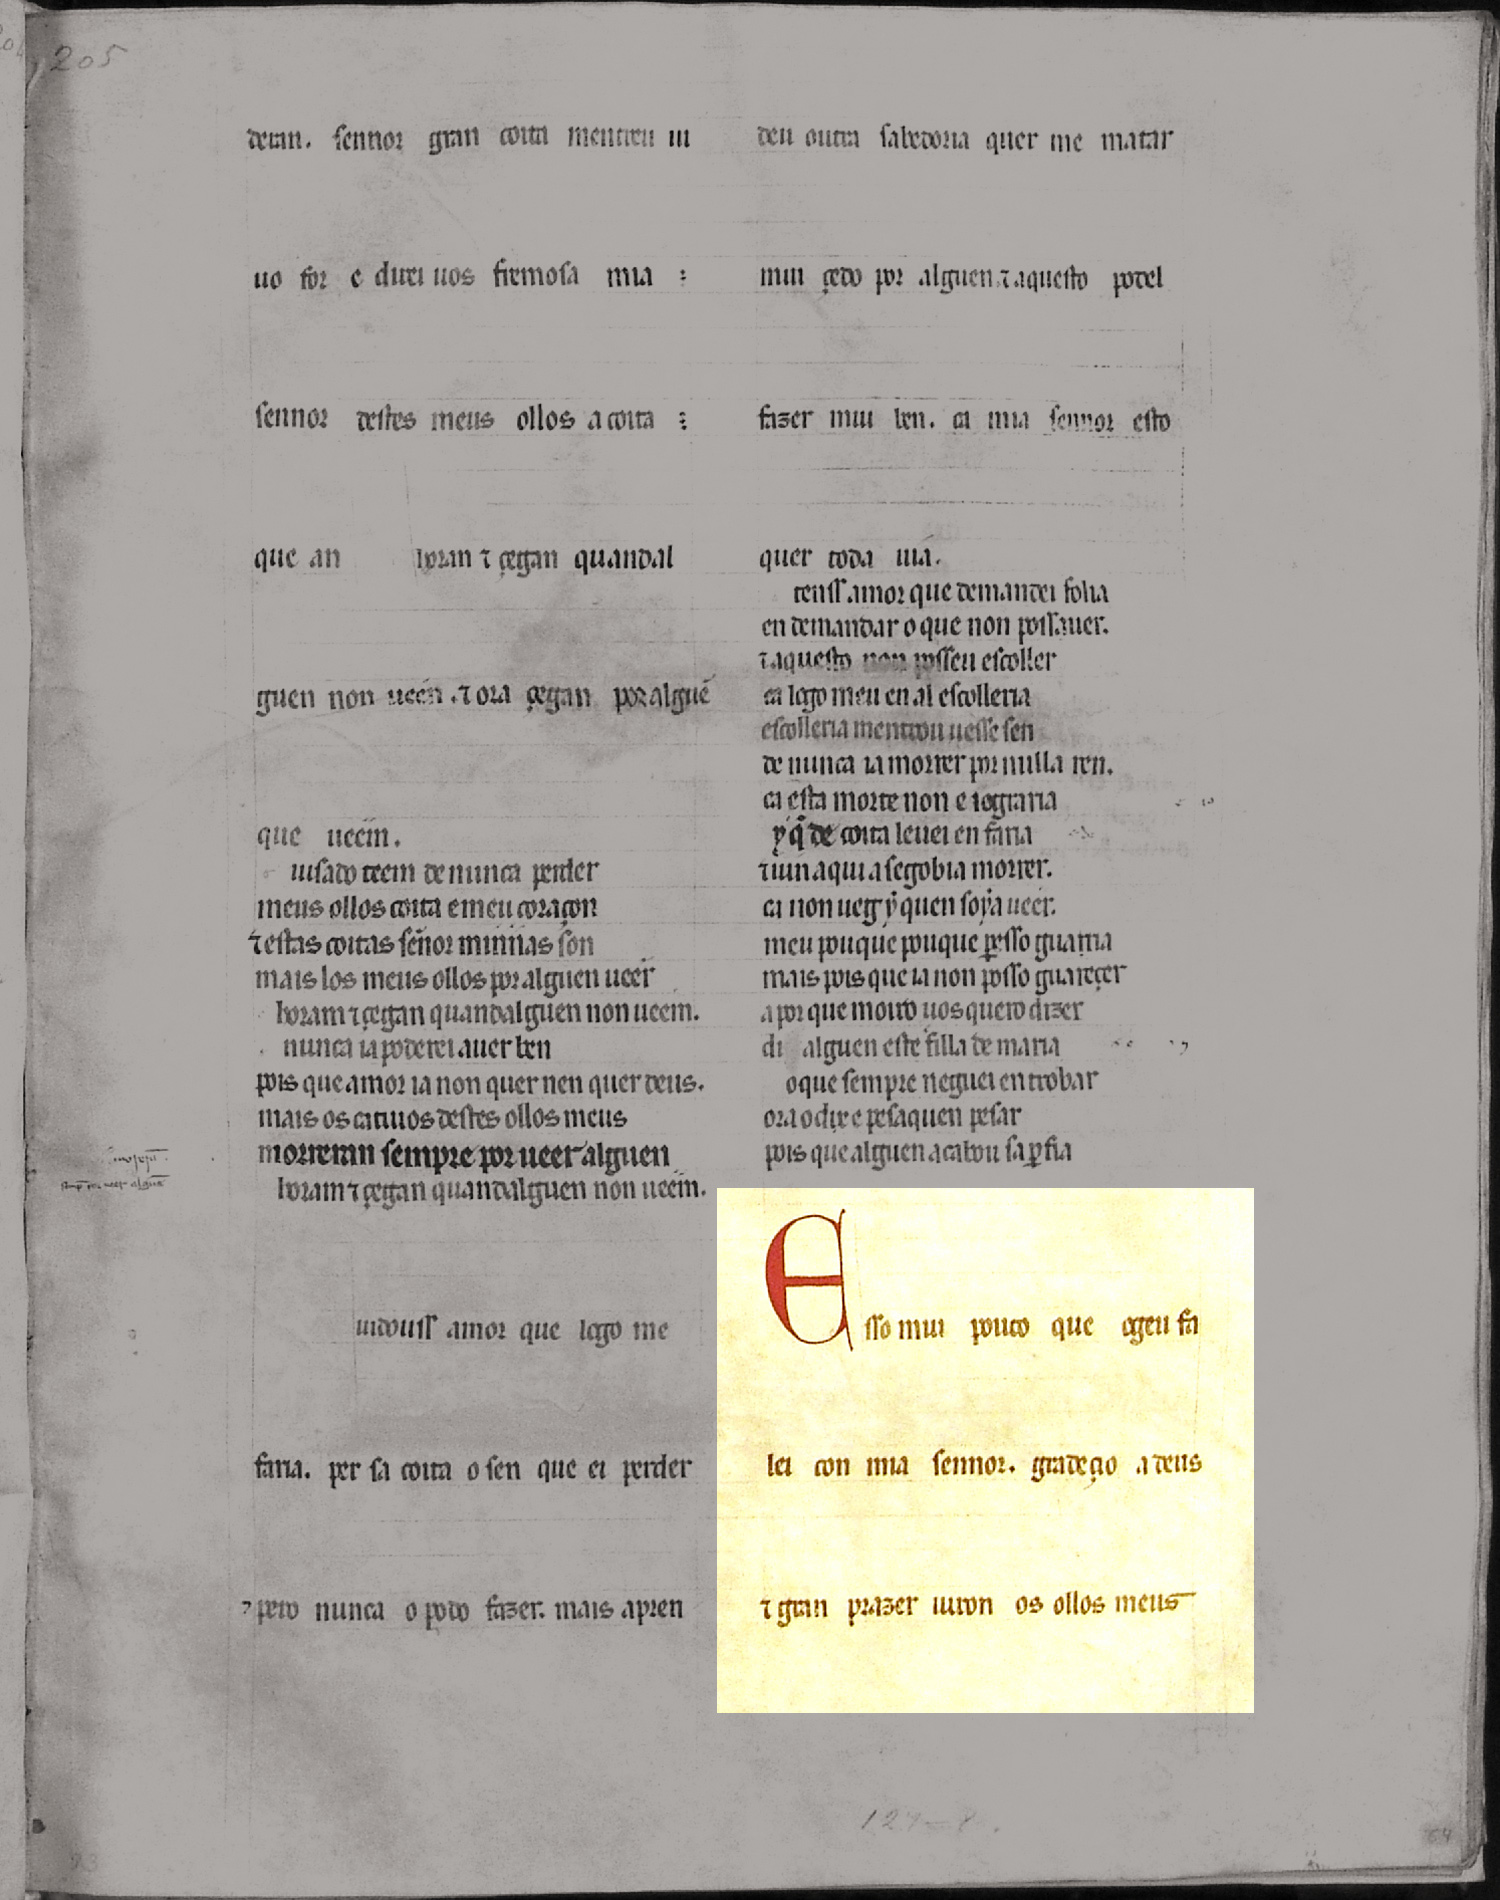 205
deran. sennor gran coita mentreu ui
uo for e direi uos fremosa mia :
sennor destes meus ollos a coita :
que an loran ⁊ çegan quandal
guen non ueen .⁊ ora çegan por alguẽ
que ueen.
uisado teem de nunca perder
meus ollos coita e meu coraçon
⁊ estas coitas sẽnor minnas son
mais los meus ollos por alguen ueer
loram ⁊ çegan quandalguen non ueem.
nunca ia poderei auer ben
pois que amor ia non quer nen quer deus.
mais os catiuos destes ollos meus
morreran sempre por ueer alguen
loram ⁊ çegan quandalguen non ueem.
uidouss amor que logo me
faria. per sa coita o sen que ei perder
⁊ pero nunca o podo fazer. mais apren
deu outra sabedoria quer me matar
mui çedo por alguen.⁊ aquesto podel
fazer mui ben. ca mia sennor esto
quer toda uia.
teniss amor que demandei folia
en demandar o que non poss auer.
⁊ aquesto non posseu escoller
ca logo meu en al escolleria
escolleria mentrou uesse sen
de nunca ia morrer por nulla ren.
ca esta morte non e iograria
y q̃ de coita leuei en faria
⁊ uin aqui a segobia morrer.
ca non uegy quen soya ueer.
meu pouque pouque ꝑesso guarria
mais pois que ia non posso guareçer
a por que moiro uos quero dizer
di alguen este filla de maria
o que sempre neguei en trobar
ora o dixe pesaquen pesar
pois que alguen acabou sa ꝑfia
Esso mui pouco que ogeu fa
lei con mia sennor. gradeçio a deus
⁊ gran prazer uiron os ollos meus